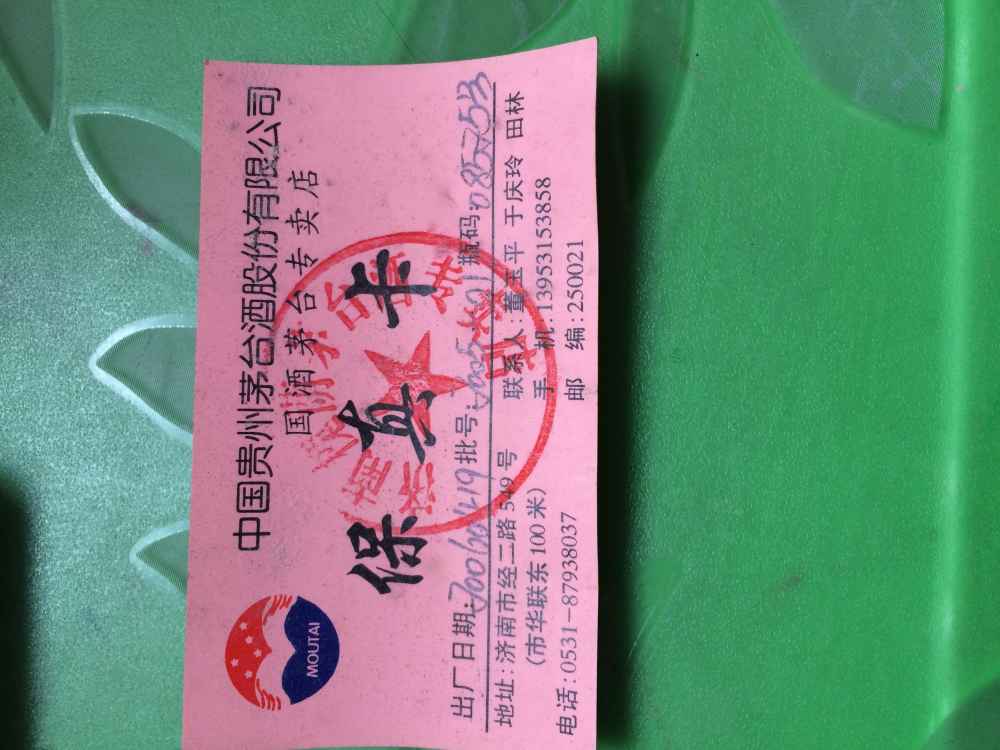 中国贵州茅台酒股份有限公司
国酒茅台专卖店
MOUTAI
保真卡
出厂日期:20060419 批号: 瓶码:085753
地址:济南市经二路549号 联系人:董玉平 于庆玲 田林
(市华联东100米) 手 机:13953153858
电话:0531-87938037 邮 编:250021